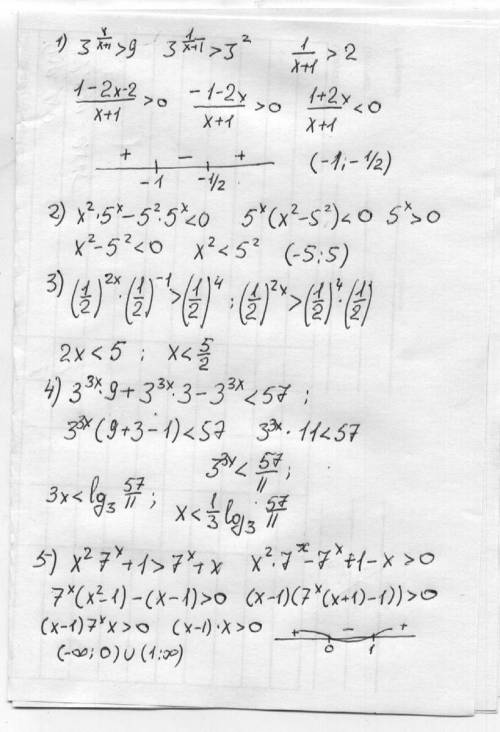 1) 3^(x/(x+1)) > 9   3^(1/(x+1)) > 3^2   1/(x+1) > 2
(1-2x-2)/(x+1) > 0   (-1-2x)/(x+1) > 0   (1+2x)/(x+1) < 0
+ - +   (-1; -1/2)
-1 -1/2
2) x^2·5^x - 5^2·5^x < 0   5^x(x^2-5^2) < 0   5^x > 0
x^2-5^2 < 0   x^2 < 5^2   (-5; 5)
3) (1/2)^(2x)·(1/2)^(-1) > (1/2)^4 ; (1/2)^(2x) > (1/2)^4·(1/2)
2x < 5 ; x < 5/2
4) 3^(3x)·9 + 3^(3x)·3 - 3^(3x) < 57 ;
3^(3x)(9+3-1) < 57   3^(3x)·11 < 57
3^(3x) < 57/11 ;
3x < log_3 57/11 ; x < 1/3 log_3 57/11
5) x^2 7^x + 1 > 7^x + x   x^2·7^x - 7^x + 1 - x > 0
7^x(x^2-1) - (x-1) > 0   (x-1)(7^x(x+1)-1)) > 0
(x-1)7^x x > 0   (x-1)·x > 0   + - +
0 1
(-∞; 0) ∪ (1; ∞)